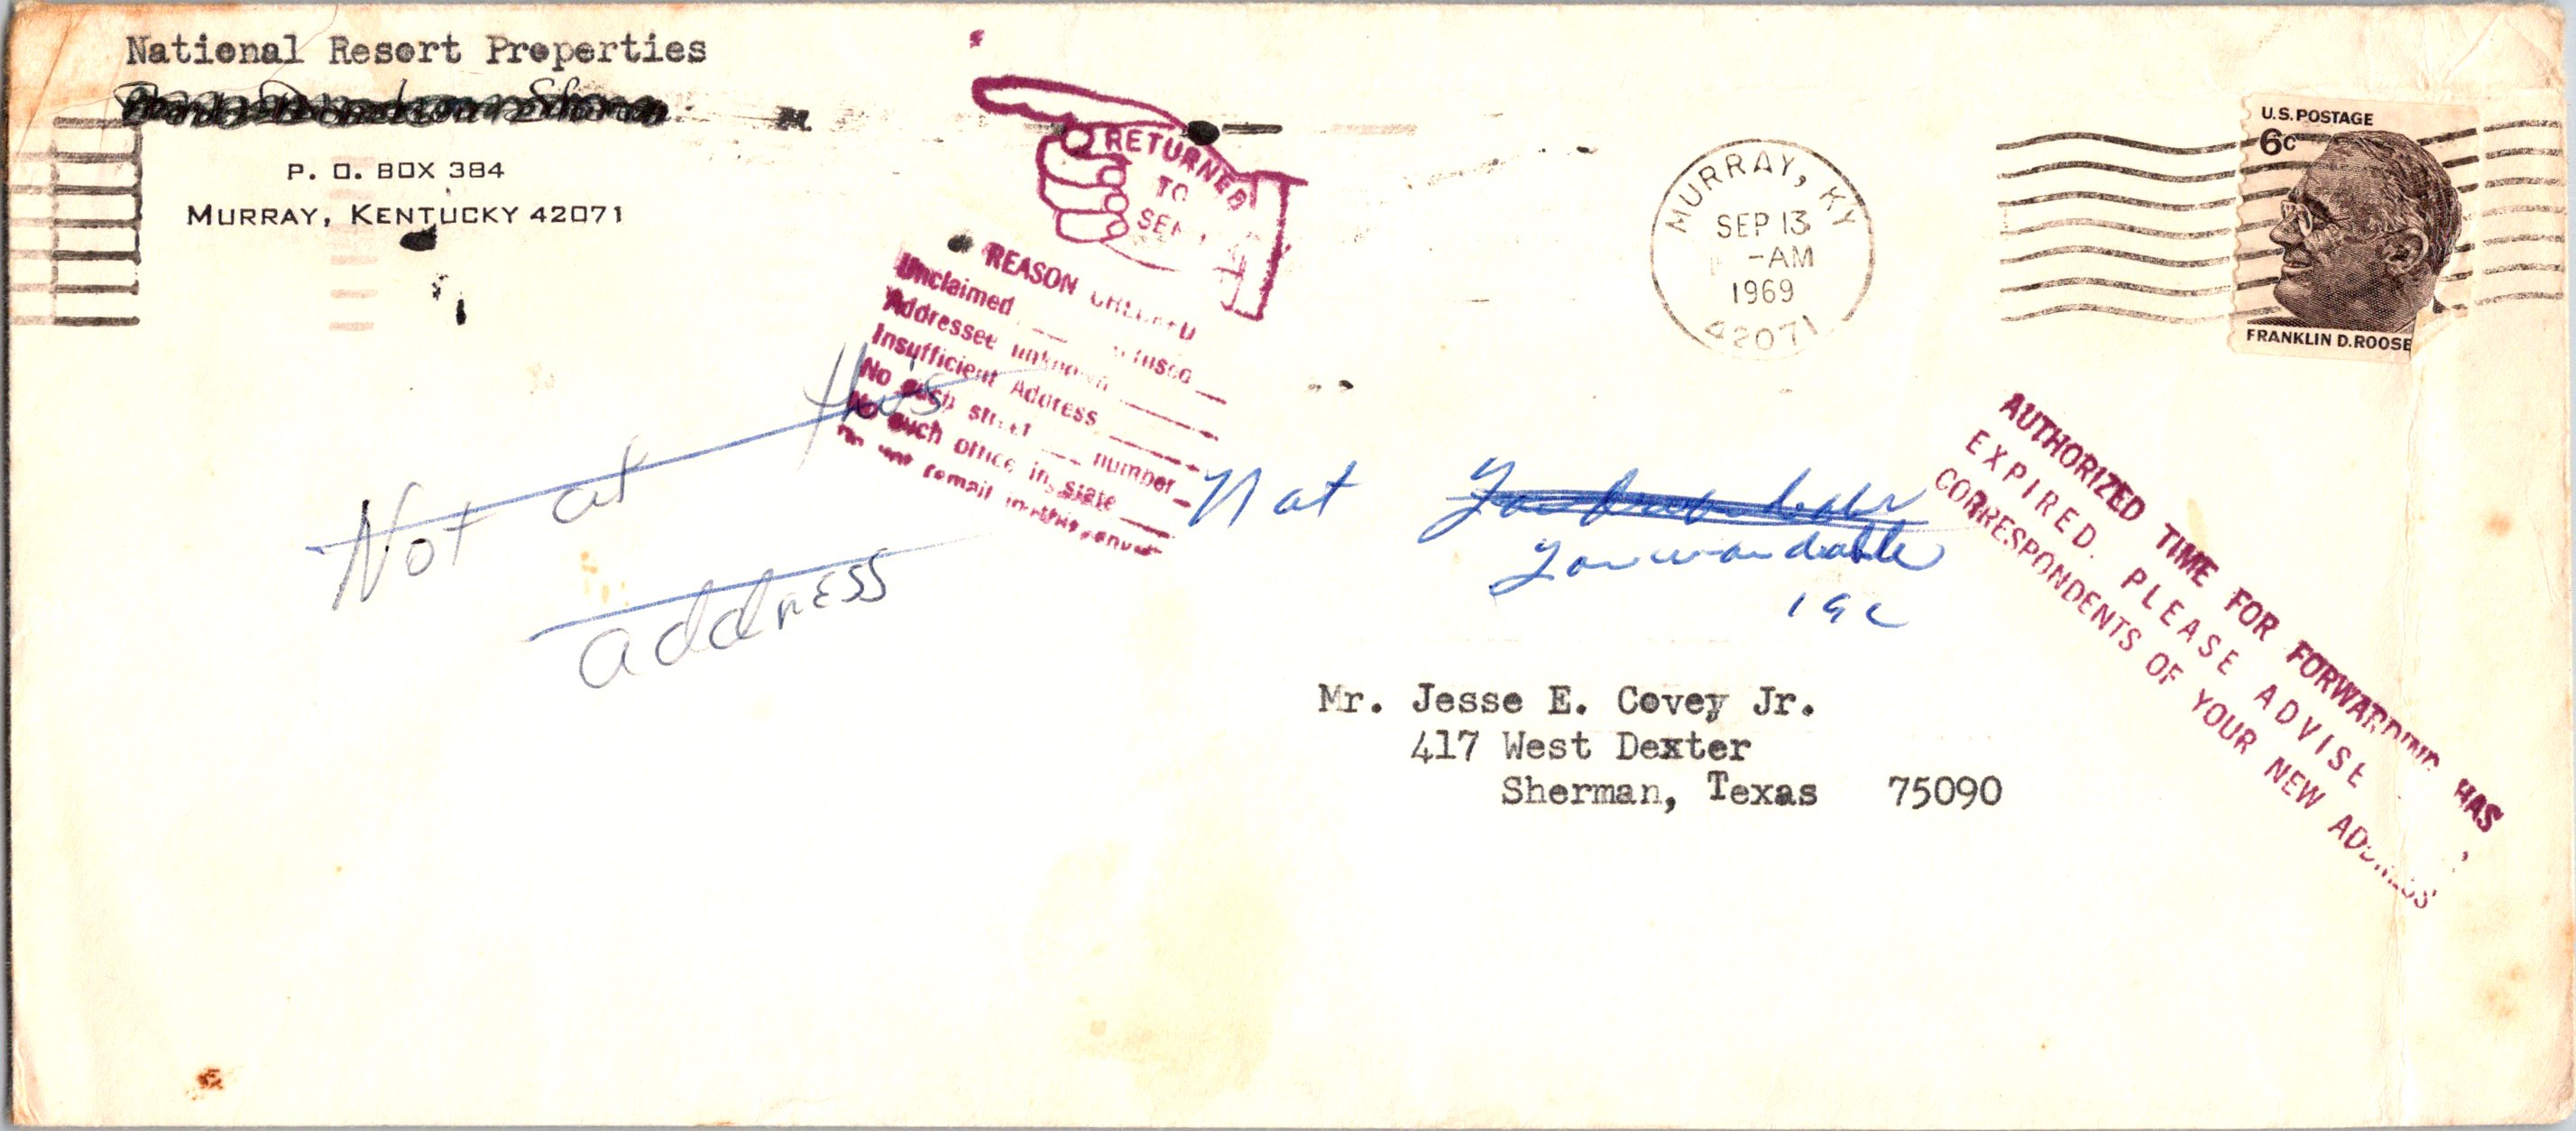 National Resort Properties
Shores
P. O. BOX 384
MURRAY, KENTUCKY 42071
RETURNED
TO
REASON CHECKED
Unclaimed ___ Refused ___
Addressee unknown ___
Insufficient Address ___
No such street ___ number ___
No such office in state ___
Do not remail in this envelope
MURRAY, KY
SEP 13
-AM
1969
42071
U.S. POSTAGE
6c
FRANKLIN D. ROOSE
AUTHORIZED TIME FOR FORWARDING HAS
EXPIRED. PLEASE ADVISE
CORRESPONDENTS OF YOUR NEW ADDRESS
Not at this
address
Not
Forwardable
Mr. Jesse E. Covey Jr.
417 West Dexter
Sherman, Texas 75090